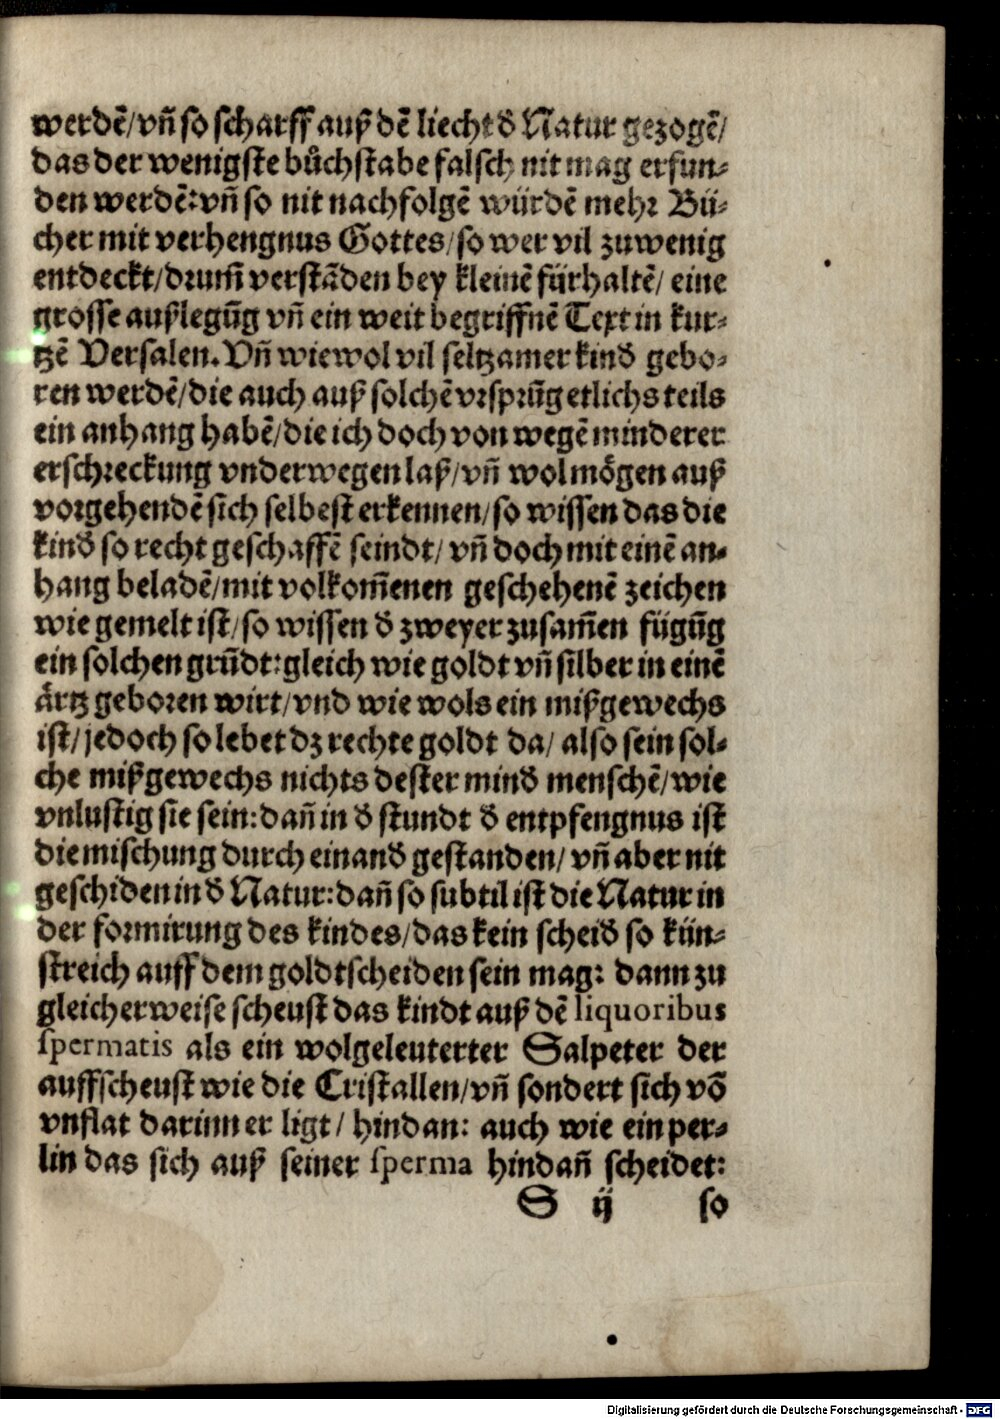 werdē/vñ so scharff auß dē liecht d̕ Natur gezogē/
das der wenigste bůchstabe falsch nit mag erfun⸗
den werdē: vñ so nit nachfolgē würdē mehr Bü⸗
cher mit verhengnus Gottes/so wer vil zuwenig
entdeckt/drum̄ verstādē bey kleinē fürhaltē/ eine
grosse außlegūg vñ ein weit begriffnē Text in kur⸗
tzē Versalen. Vñ wiewol vil seltzamer kind̕ gebo⸗
ren werdē/die auch auß solchē vrsprūg etlichs teils
ein anhang habē/die ich doch von wegē minderer
erschreckung vnderwegen laß/vñ wol mögen auß
vorgehendē sich selbest erkennen/so wissen das die
kind̕ so recht geschaffē seindt/ vñ doch mit einē an⸗
hang beladē/mit volkom̄enen geschehenē zeichen
wie gemelt ist/so wissen d̕ zweyer zusam̄en fügūg
ein solchen grūdt: gleich wie goldt vñ silber in einē
ärtz geboren wirt/vnd wie wols ein mißgewechs
ist/jedoch so lebet dz rechte goldt da/ also sein sol⸗
che mißgewechs nichts dester mind̕ menschē/wie
vnlustig sie sein: dañ in d̕ stundt d̕ entpfengnus ist
die mischung durch einand̕ gestanden/ vñ aber nit
geschiden in d̕ Natur: dañ so subtil ist die Natur in
der formirung des kindes/das kein scheid̕ so kün⸗
streich auff dem goldtscheiden sein mag: dann zu
gleicherweise scheust das kindt auß dē liquoribus
spermatis als ein wolgeleuterter Salpeter der
auffscheust wie die Cristallen/vñ sondert sich vō
vnflat darinn er ligt/ hindan: auch wie ein per⸗
lin das sich auß seiner sperma hindañ scheidet:
S ij so
Digitalisierung gefördert durch die Deutsche Forschungsgemeinschaft - DFG